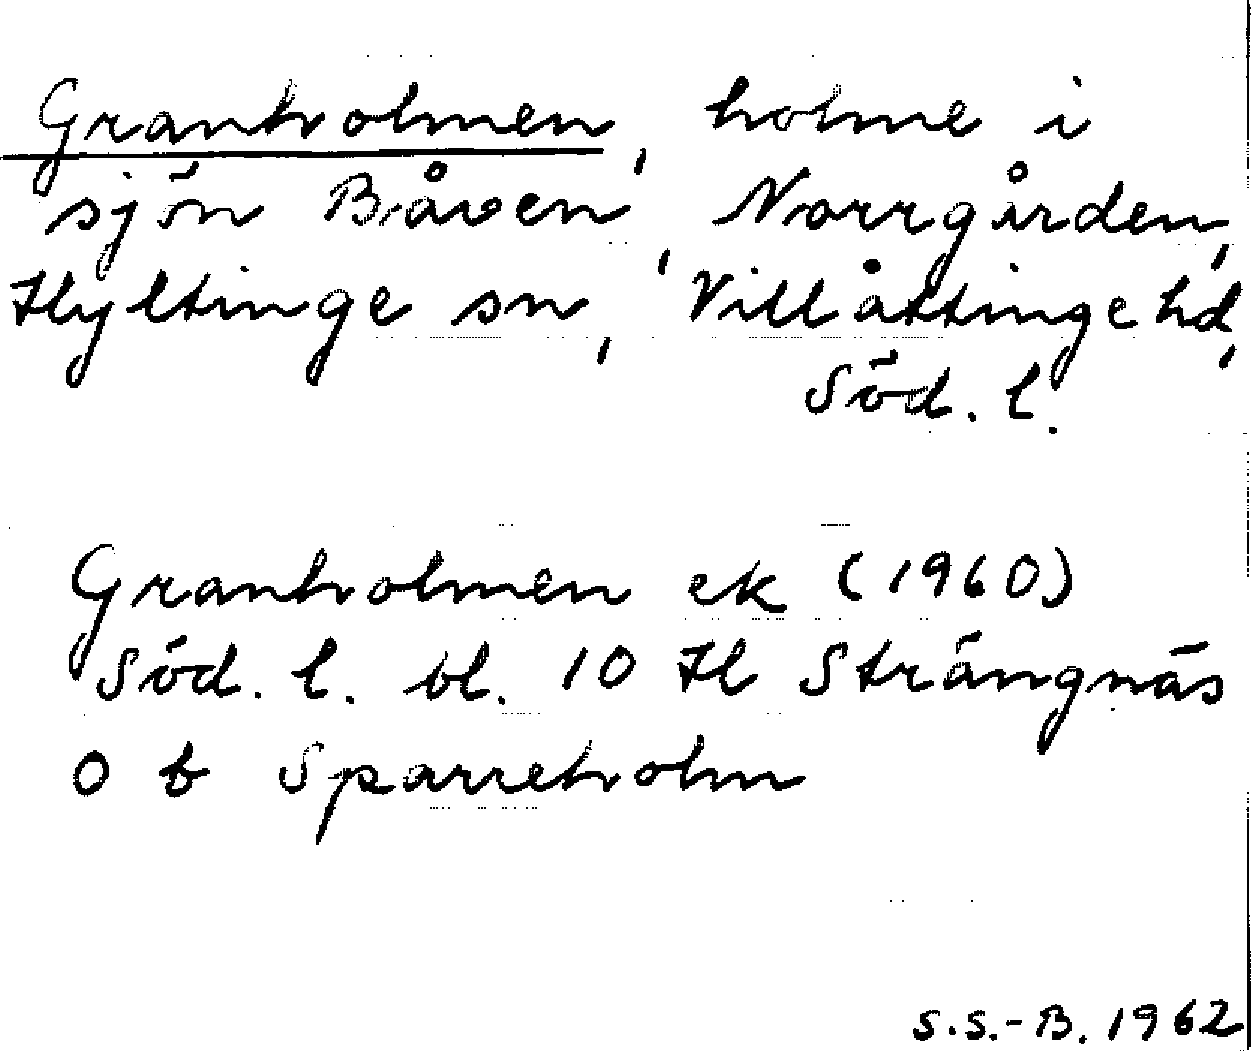 Granholmen, holme i
sjön Båven, Norrgården,
Hyltinge sn, Villåttinge hd,
Söd. l.
Granholmen ek (1960)
Söd. l. bl. 10 H Strängnäs
O b Sparreholm
S.S.-B. 1962